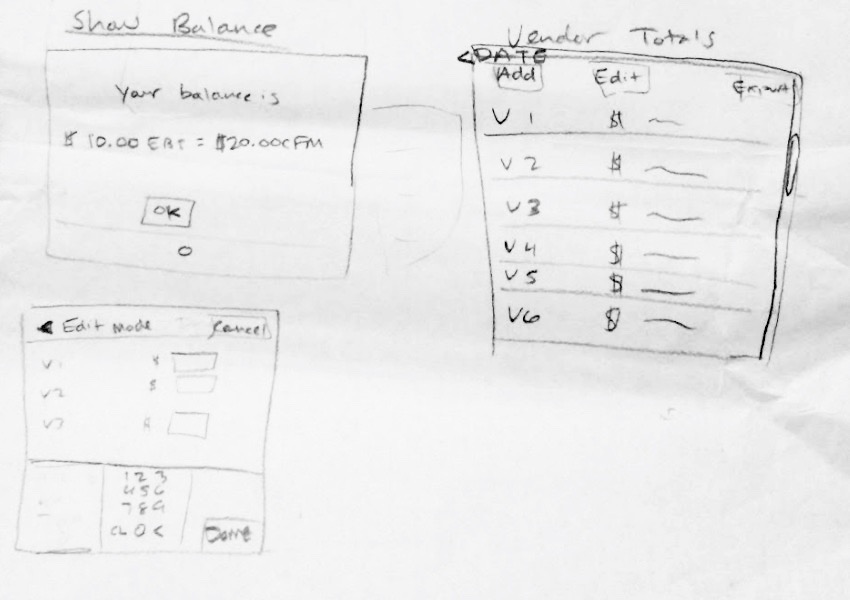 Show Balance
Your balance is
$ 10.00 EBT = $20.00 CFM
OK
Vendor Totals
< DATE
Add Edit Export
V 1 $
V 2 $
V 3 $
V 4 $
V 5 $
V6 $
Edit mode Cancel
V1 $
V2 $
V3 $
1 2 3
4 5 6
7 8 9
CL 0 <
Done